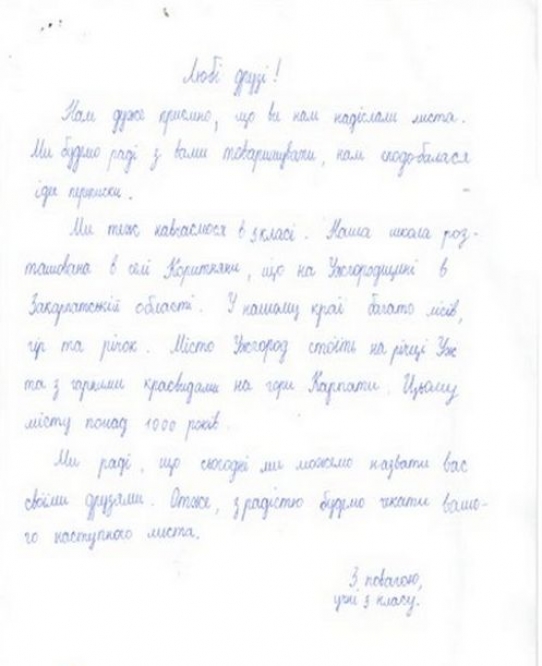 Любі друзі!
Нам дуже приємно, що ви нам надіслали листа.
Ми будемо раді з вами товаришувати, нам сподобалася
ідея переписки.
Ми теж навчаємося в 3 класі. Наша школа роз-
ташована в селі Коритняни, що на Ужгородщині в
Закарпатській області. У нашому краї багато лісів,
гір та річок. Місто Ужгород стоїть на річці Уж
та з гарними краєвидами на гори Карпати. Цьому
місту понад 1000 років.
Ми раді, що сьогодні ми можемо назвати вас
своїми друзями. Отже, з радістю будемо чекати вашо-
го наступного листа.
З повагою,
учні 3 класу.